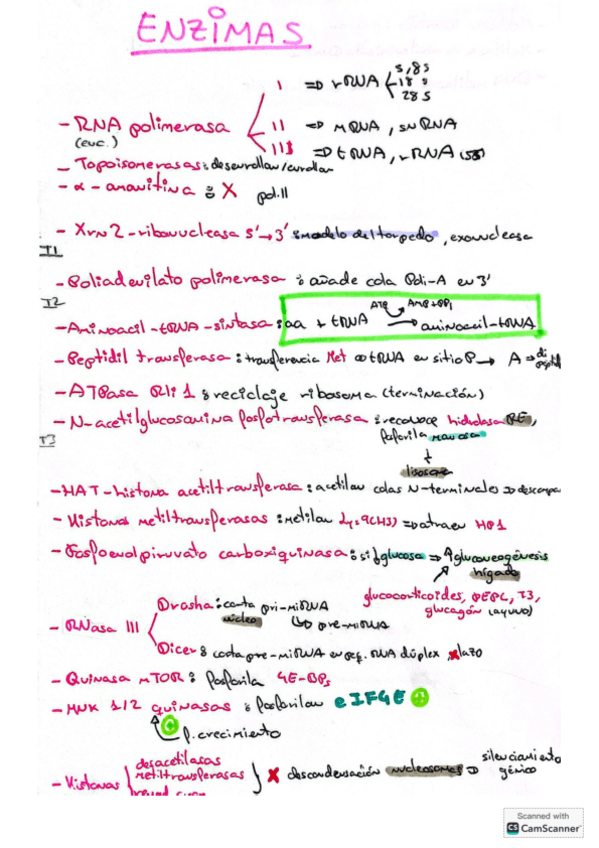 ENZIMAS
5,8S
I => rRNA 18 S
28 S
- RNA polimerasa II => mRNA, snRNA
(euc.)
III => tRNA, rRNA (5S)
- Topoisomerasas: desenrollan/enrollan
- α-amanitina: X pol.II
- Xrn2-ribonucleasa 5'→3': modelo del torpedo, exonucleasa
T1
- Poliadenilato polimerasa: añade cola Poli-A en 3'
T2
ATP AMP+PPi
- Aminoacil-tRNA-sintasa: aa + tRNA → aminoacil-tRNA
- Peptidil transferasa: transferencia Met tRNA en sitio P → A =>
- ATPasa Rli1: reciclaje ribosoma (terminación)
- N-acetilglucosamina fosfotransferasa: reconoce hidrolasa RE,
T3
fosforila manosa
↓
lisosoma
- HAT-histona acetiltransferasa: acetilan colas N-terminales => descompa
- Histonas metiltransferasas: metilan Lys9(CH3) => atraen HP1
- Fosfoenolpiruvato carboxiquinasa: si glucosa => gluconeogénesis
hígado
glucocorticoides, PEPC, T3,
glucagón (ayuno)
Drosha: corta pri-miRNA
núcleo → pre-miRNA
- RNasa III
Dicer: corta pre-miRNA en peq. RNA dúplex, X lazo
- Quinasa mTOR: fosforila 4E-BPs
- MNK 1/2 quinasas: fosforilan eIF4E
+
F. crecimiento
desacetilasas
- Histonas metiltransferasas } X descondensación nucleosomas => silenciamiento
génico
Scanned with
CS CamScanner